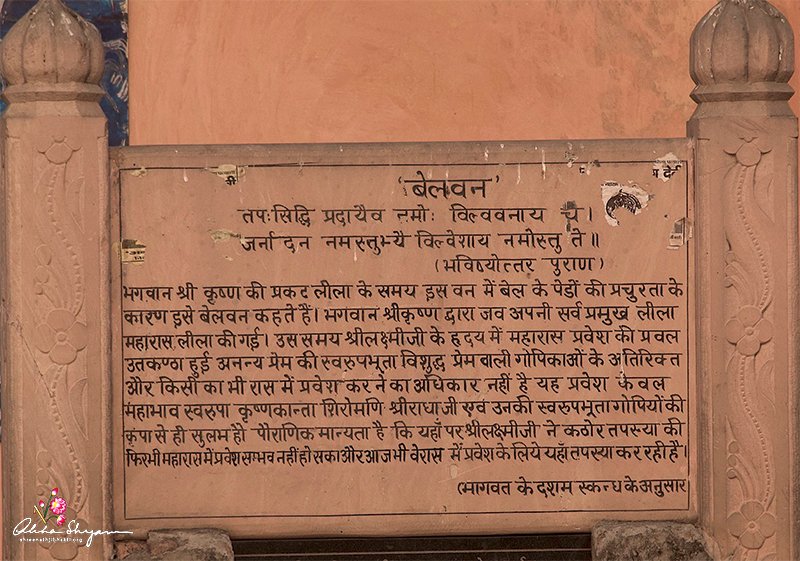 'बेलवन'
तपःसिद्धि प्रदायैव नमोः विल्ववनाय च।
जर्नादन नमस्तुभ्यै विल्वेशाय नमोस्तु ते॥
(भविष्योत्तर पुराण)
भगवान श्री कृष्ण की प्रकट लीला के समय इस वन में बेल के पेडों की प्रचुरता के
कारण इसे बेलवन कहते हैं। भगवान श्रीकृष्ण द्वारा जव अपनी सर्व प्रमुख लीला
महारास लीला की गई। उस समय श्रीलक्ष्मीजी के हृदय में महारास प्रवेश की प्रवल
उतकण्ठा हुई अनन्य प्रेम की स्वरुपभूता विशुद्ध प्रेम वाली गोपिकाओं के अतिरिक्त
और किसी का भी रास में प्रवेश कर ने का अधिकार नहीं है यह प्रवेश केवल
महाभाव स्वरुपा कृष्णकान्ता शिरोमणि श्रीराधाजी एवं उनकी स्वरुपभूता गोपियों की
कृपा से ही सुलभ हो पौराणिक मान्यता है कि यहाँ पर श्रीलक्ष्मीजी ने कठोर तपस्या की
फिरभी महारास में प्रवेश सम्भव नहीं हो सका और आज भी वे रास में प्रवेश के लिये यहाँ तपस्या कर रही हैं।
(भागवत के दशम स्कन्ध के अनुसार